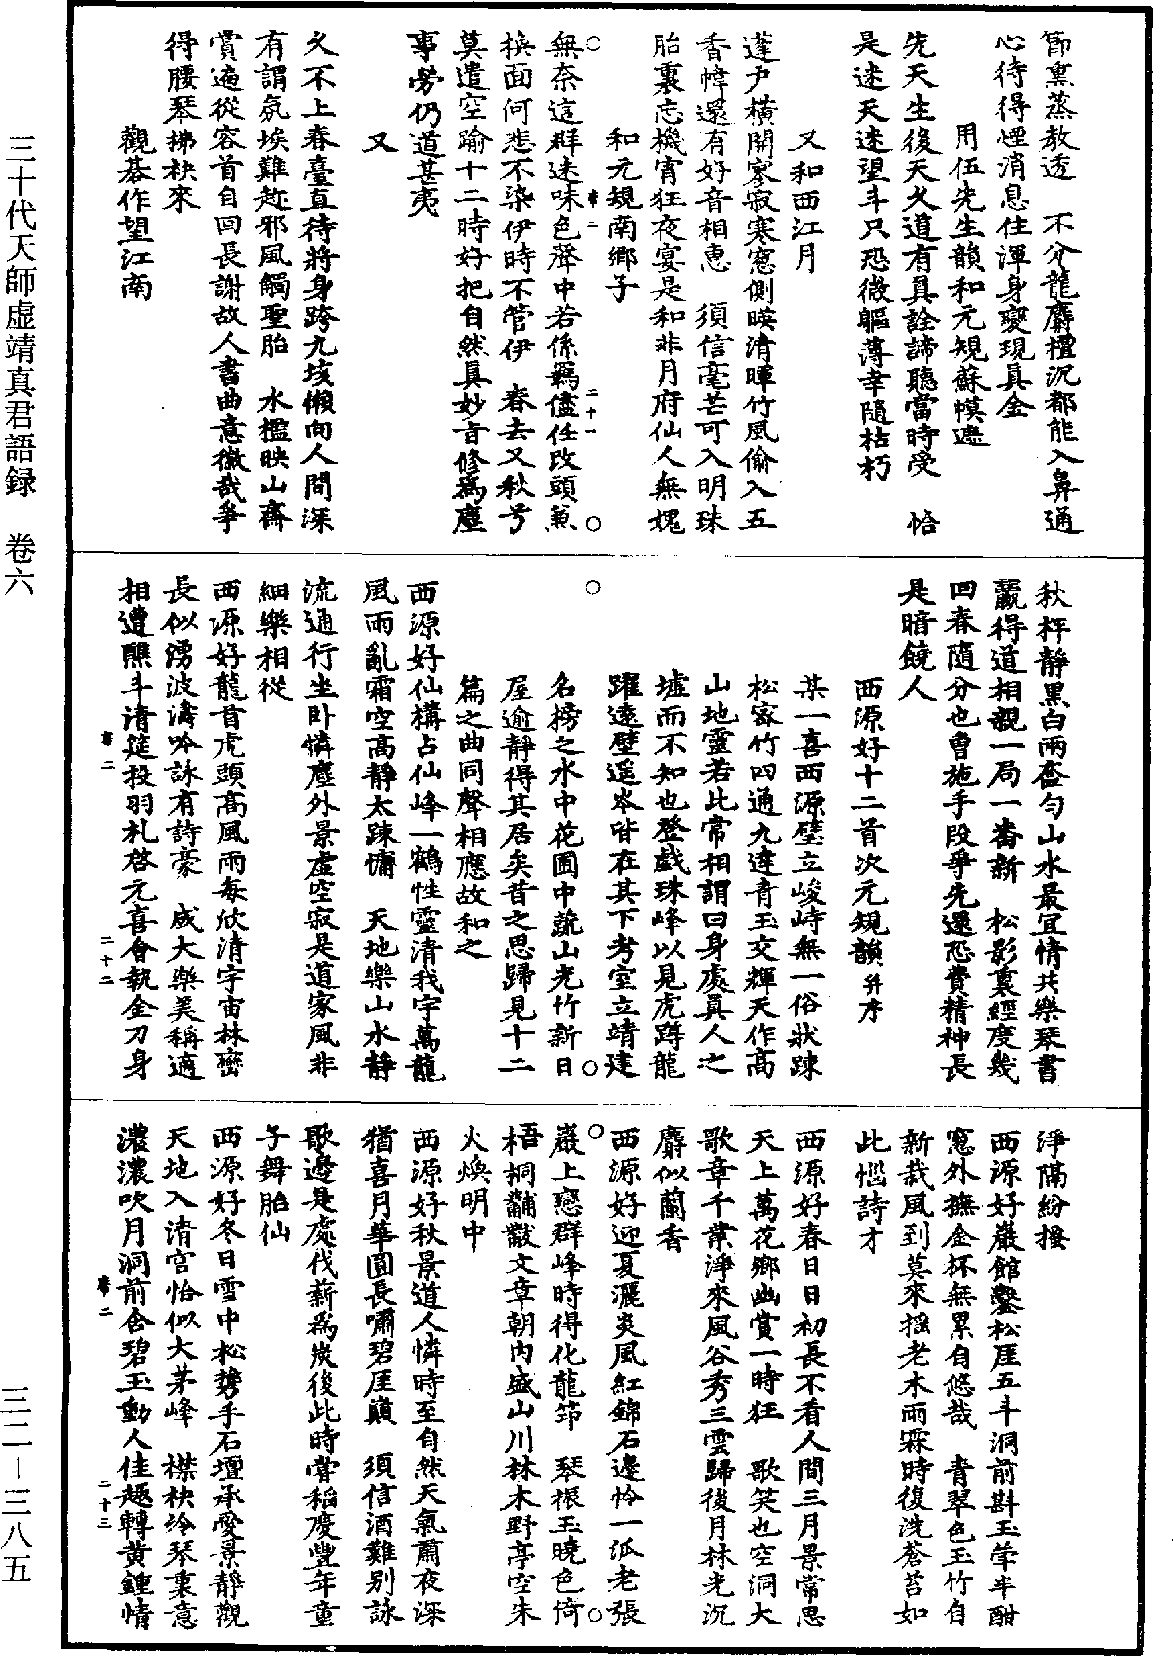 節熏蒸教透　不分龍麝檀沉都能入鼻通
心待得煙消息住渾身變現真金
用伍先生韻和元規蘇幙遮
先天生後天久道有真詮諦聽當時受　恰
是迷天迷望斗只恐微軀薄幸隨枯朽
又和西江月
蓬戶橫開寥寂寒窓側暎清暉竹風偷入五
香幃還有好音相惠　須信毫芒可入明珠
胎裏忘機宵狂夜宴是和非月府仙人無媿
和元規南鄉子
無奈這群迷味色聲中若係羈儘任改頭兼
換面何悲不染伊時不管伊　春去又秋兮
莫遣空踰十二時好把自然真妙音修為塵
事勞仍道甚夷
又
久不上春臺直待將身跨九垓懶向人間深
有謂氛埃難趂邪風觸聖胎　水檻映山齋
賞遍從容首自回長謝故人書曲意徽哉爭
得腰琴拂袂來
觀棊作望江南
秋枰靜黑白兩奩勻山水最宜情共樂琴書
贏得道相親一局一番新　松影裏經度幾
回春隨分也曾施手段爭先還恐費精神長
是暗饒人
西源好十二首次元規韻并序
某一喜西源壁立峻峙無一俗狀踈
松密竹四通九達青玉交輝天作高
山地靈若此常相謂曰身處真人之
墟而不知也登戲珠峰以見虎蹲龍
躍遠壁遥岑皆在其下考室立靖建
名榜之水中花圃中蔬山光竹新日
屋逾靜得其居矣昔之思歸見十二
篇之曲同聲相應故和之
西源好仙構占仙峰一鶴性靈清我宇萬龍
風雨亂霜空高靜太踈慵　天地樂山水靜
流通行坐卧憐塵外景虛空寂是道家風非
細樂相從
西源好龍首虎頭高風雨每欣清宇宙林巒
長似湧波濤吟詠有詩豪　咸大樂美稱適
相遭醮斗清筵投羽札啓元喜會執金刀身
淨隔紛擾
西源好巖館鑿松厓五斗洞前斟玉斝半酣
窓外撫金杯無累自悠哉　青翠色玉竹自
新栽風到莫來摇老木雨霖時復洗蒼苔如
此惱詩才
西源好春日日初長不看人間三月景常思
天上萬花鄉幽賞一時狂　歌笑也空洞大
歌章千葉淨來風谷秀三雲歸後月林光沉
麝似蘭香
西源好迎夏灑炎風紅錦石邊怜一派老張
巖上戀群峰時得化龍筇　琴振玉曉色倚
梧桐黼黻文章朝內盛山川林木野亭空朱
火煥明中
西源好秋景道人憐時至自然天氣肅夜深
猶喜月華圓長嘯碧厓巔　須信酒難別詠
歌邊是處伐薪為炭後此時嘗稻慶豐年童
子舞胎仙
西源好冬日雪中松携手石壇承愛景靜觀
天地入清宫怡似大茅峰　襟袂紷琴裏意
濃濃吹月洞前含碧玉動人佳趣轉黄鍾情
卷二
二十一
卷二
二十二
卷二
二十三
三十代天師虛靖真君語録　卷六
三二—三八五